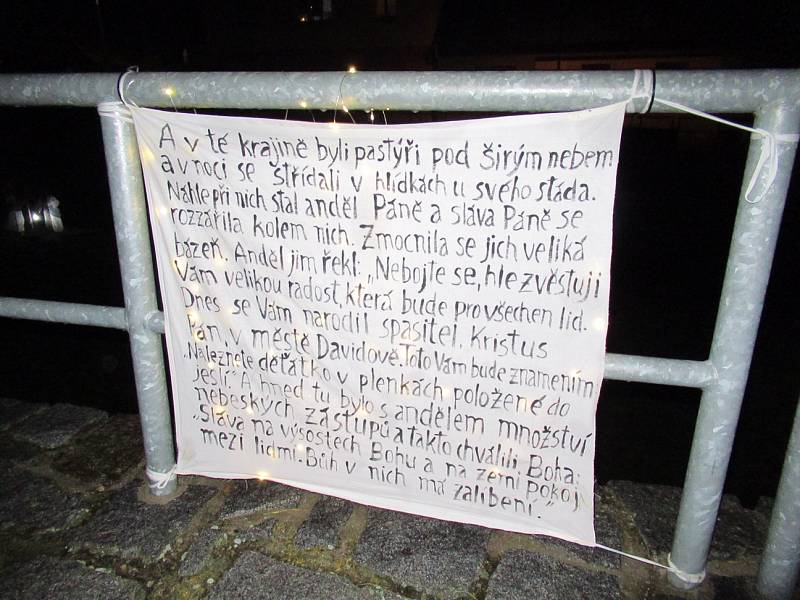 A v té krajině byli pastýři pod širým nebem
a v noci se střídali v hlídkách u svého stáda.
Náhle při nich stál anděl Páně a sláva Páně se
rozzářila kolem nich. Zmocnila se jich veliká
bázeň. Anděl jim řekl: „Nebojte se, hle zvěstuji
Vám velikou radost, která bude pro všechen lid.
Dnes se Vám narodil spasitel, Kristus
Pán, v městě Davidově. Toto Vám bude znamením
„Naleznete děťátko v plenkách položené do
jeslí.“ A hned tu bylo s andělem množství
nebeských zástupů a takto chválili Boha:
„Sláva na výsostech Bohu a na zemi pokoj
mezi lidmi. Bůh v nich má zalíbení.“